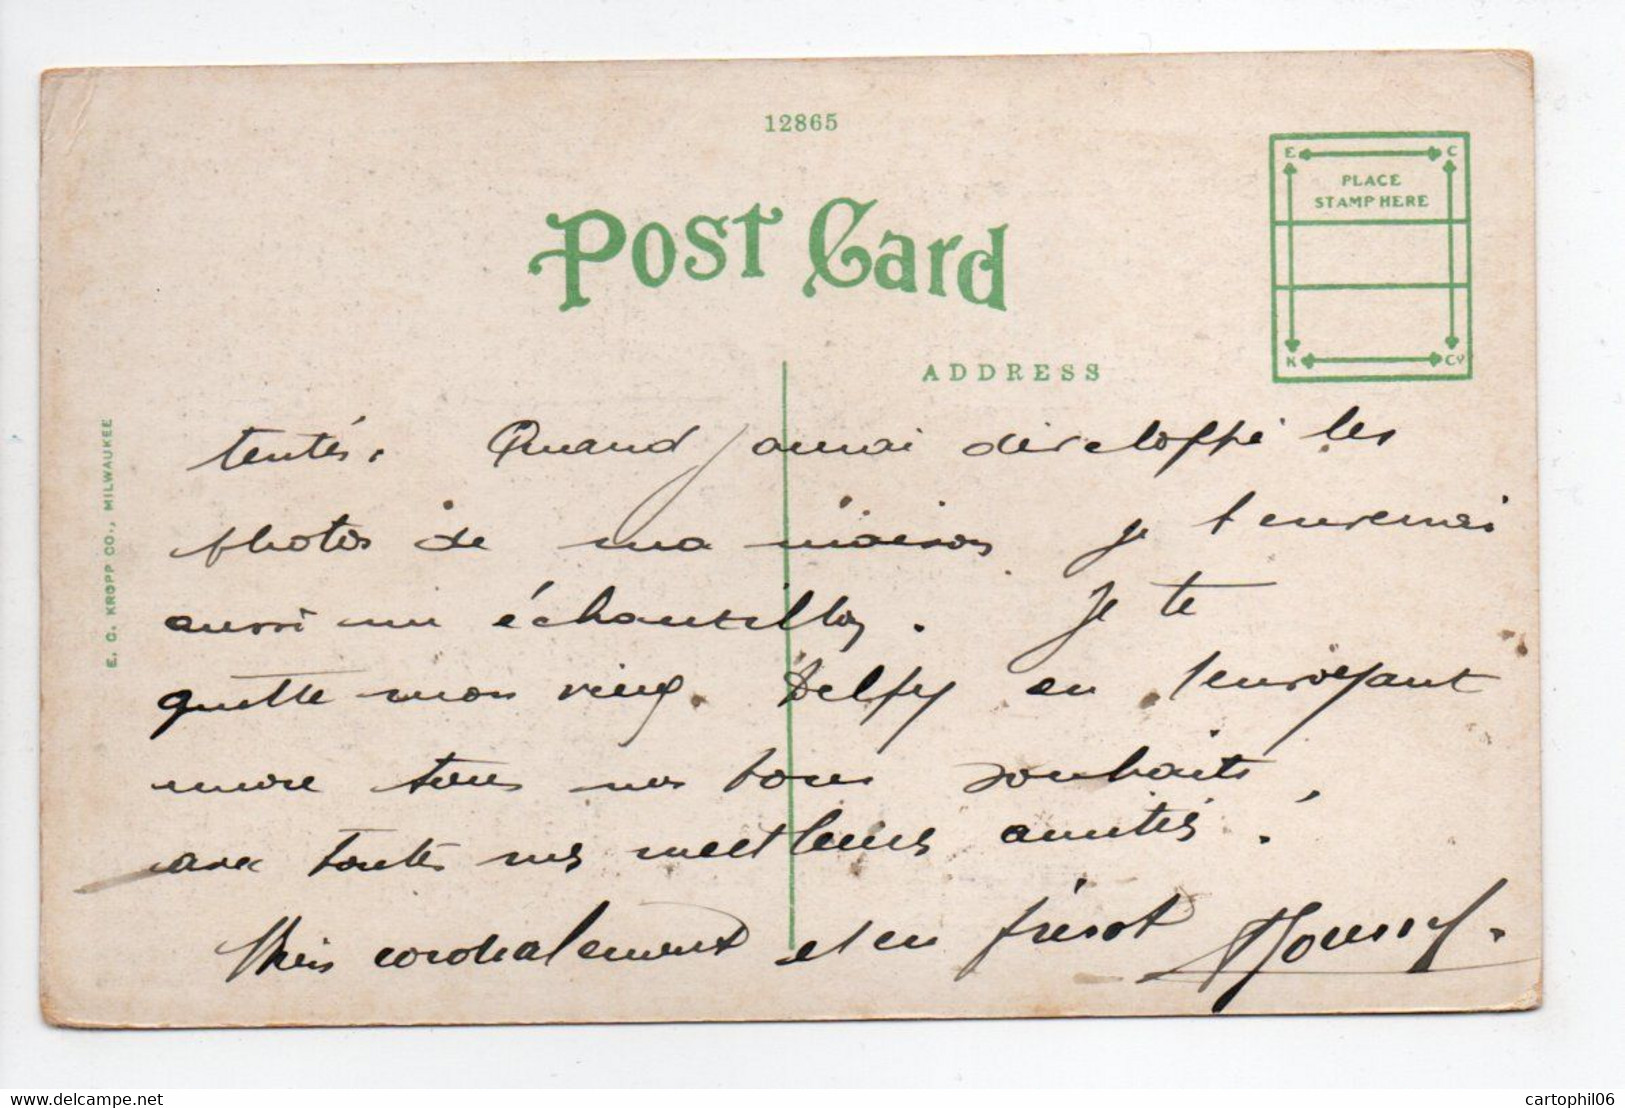 12865
POST CARD
E C
PLACE
STAMP HERE
K CY
ADDRESS
E. C. KROPP CO., MILWAUKEE
tentés. Quand j'aurai développé les
photos de ma maison je t'enverrai
aussi un échantillon. Je te
quitte mon vieux Delfy en t'envoyant
encore tous nos bons souhaits,
avec toutes nos meilleures amitiés.
Très cordialement et en
cartophil06
www.delcampe.net